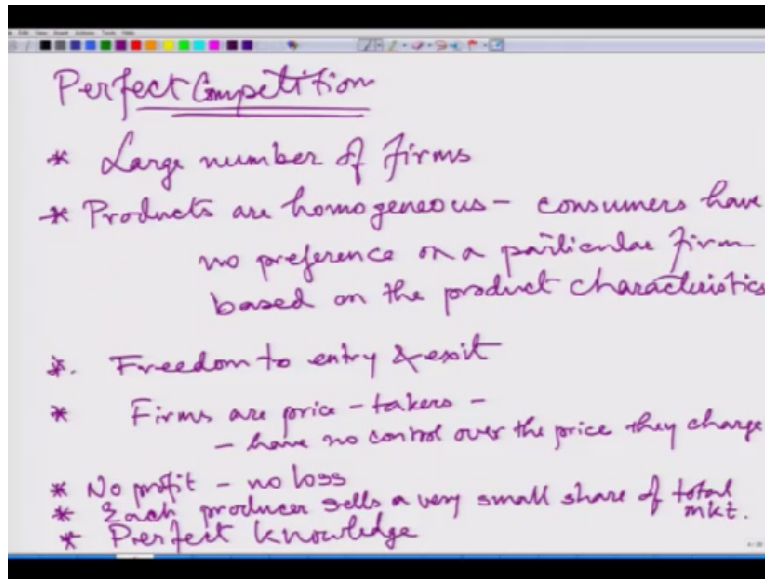 Perfect Competition
* Large number of firms
* Products are homogeneous - consumers have
no preference on a particular firm
based on the product characteristics
*. Freedom to entry & exit
* Firms are price-takers -
- have no control over the price they charge
* No profit - no loss
* Each producer sells a very small share of total mkt.
* Perfect knowledge